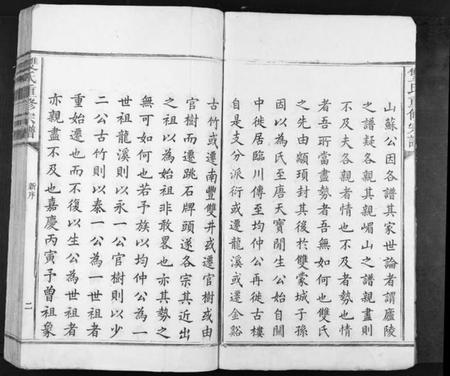 山蘇公因各譜其家世論者謂廬陵
之譜疑各親其親嵋山之譜親盡則
不及夫各親者情也不及者勢也情
者吾所當盡勢者吾無如何也雙氏
之先由顓頊封其後於雙蒙城子孫
因以為氏至唐天寶間生公始自閩
中徙居臨川傳至均仲公再徙古樓
自是支分派衍或遷龍溪或遷金谿
古竹或遷南豐雙井或遷官樹或由
官樹而遷跳石牌頭遂各宗其近出
之祖以為始祖非敢畧也亦其勢之
無可如何也若予族以均仲公為一
世祖龍溪則以永一公官樹則以少
二公古竹則以泰一公為一世祖者
重始遷也而不復以生公為世祖者
亦親盡不及也嘉慶丙寅予曾祖象
雙氏重修宗譜
新序
二